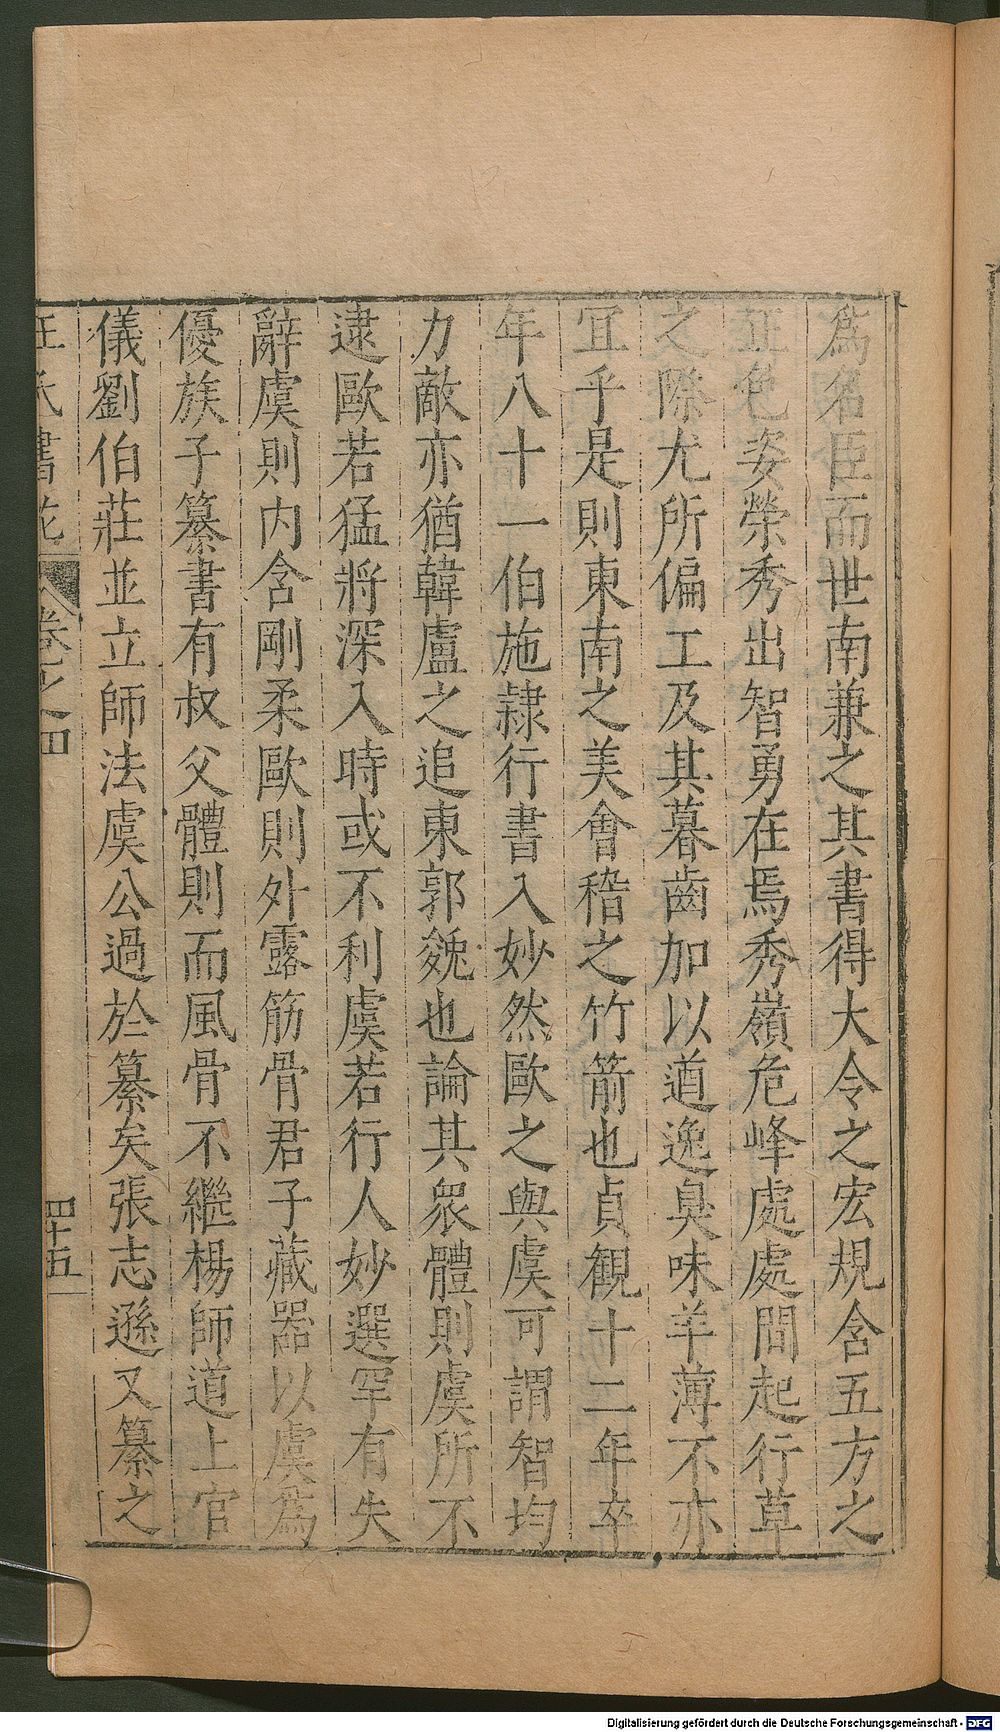 爲名臣而世南兼之其書得大令之宏規含五方之
正色姿榮秀出智勇在焉秀嶺危峰處處間起行草
之際尤所偏工及其暮齒加以遒逸臭味羊薄不亦
宜乎是則東南之美會稽之竹箭也貞觀十二年卒
年八十一伯施隷行書入妙然歐之與虞可謂智均
力敵亦猶韓盧之追東郭㕙也論其衆體則虞所不
逮歐若猛將深入時或不利虞若行人妙選罕有失
辭虞則内含剛柔歐則外露筋骨君子藏器以虞爲
優族子纂書有叔父體則而風骨不繼楊師道上官
儀劉伯莊並立師法虞公過於纂矣張志遜又纂之
王氏書苑 卷之四 四十五
Digitalisierung gefördert durch die Deutsche Forschungsgemeinschaft - DFG